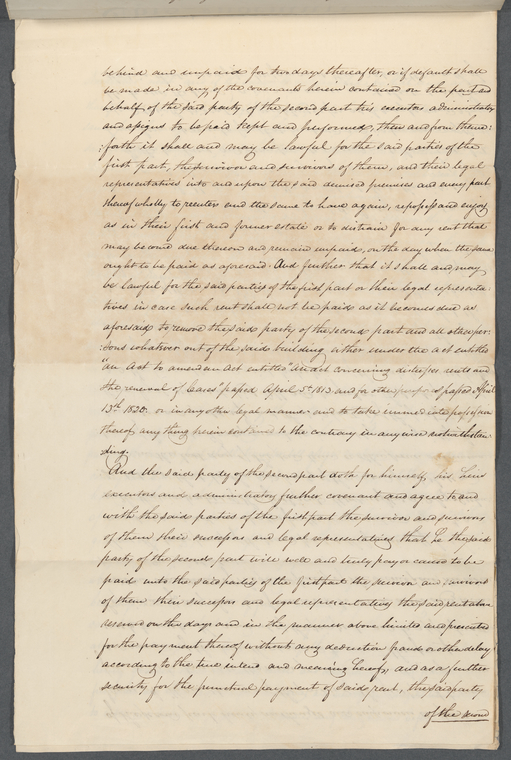 behind and unpaid for two days thereafter, or if default shall
be made in any of the covenants herein contained on the part and
behalf of the said party of the second part his executors administrators
and assigns to be paid kept and performed, then and from thence-
:forth it shall and may be lawful for the said parties of the
first part, the survivor and survivors of them, and their legal
representatives into and upon the said demised premises and every part
thereof wholly to reenter and the same to have again, repossess and enjoy
as in their first and former estate or to distrain for any rent that
may become due thereon and remain unpaid, on the day when the same
ought to be paid as aforesaid. And further that it shall and may
be lawful for the said parties of the first part or their legal representa-
tives in case such rent shall not be paid as it becomes due as
aforesaid to remove the said party of the second part and all other per-
:sons whatever out of the said building either under the act entitled
"an Act to amend an Act entitled "An Act concerning distresses rents and
the renewal of leases" passed April 5th 1813 and for other purposes passed April
13th 1820. or in any other legal manner and to take immediate possession
thereof any thing herein contained to the contrary in any wise notwithstan-
ding.
And the said party of the second part doth for himself, his heirs
executors and administrators further covenant and agree to and
with the said parties of the first part the survivor and survivors
of them their successors and legal representatives that he the said
party of the second part will well and truly pay or cause to be
paid unto the said parties of the first part the survivor and survivors
of them their successors and legal representatives the said rent above
reserved on the days and in the manner above limited and prescribed
for the payment thereof without any deduction fraud or other delay
according to the true intend and meaning hereof, and as a further
security for the punctual payment of said rent, the said party
of the second